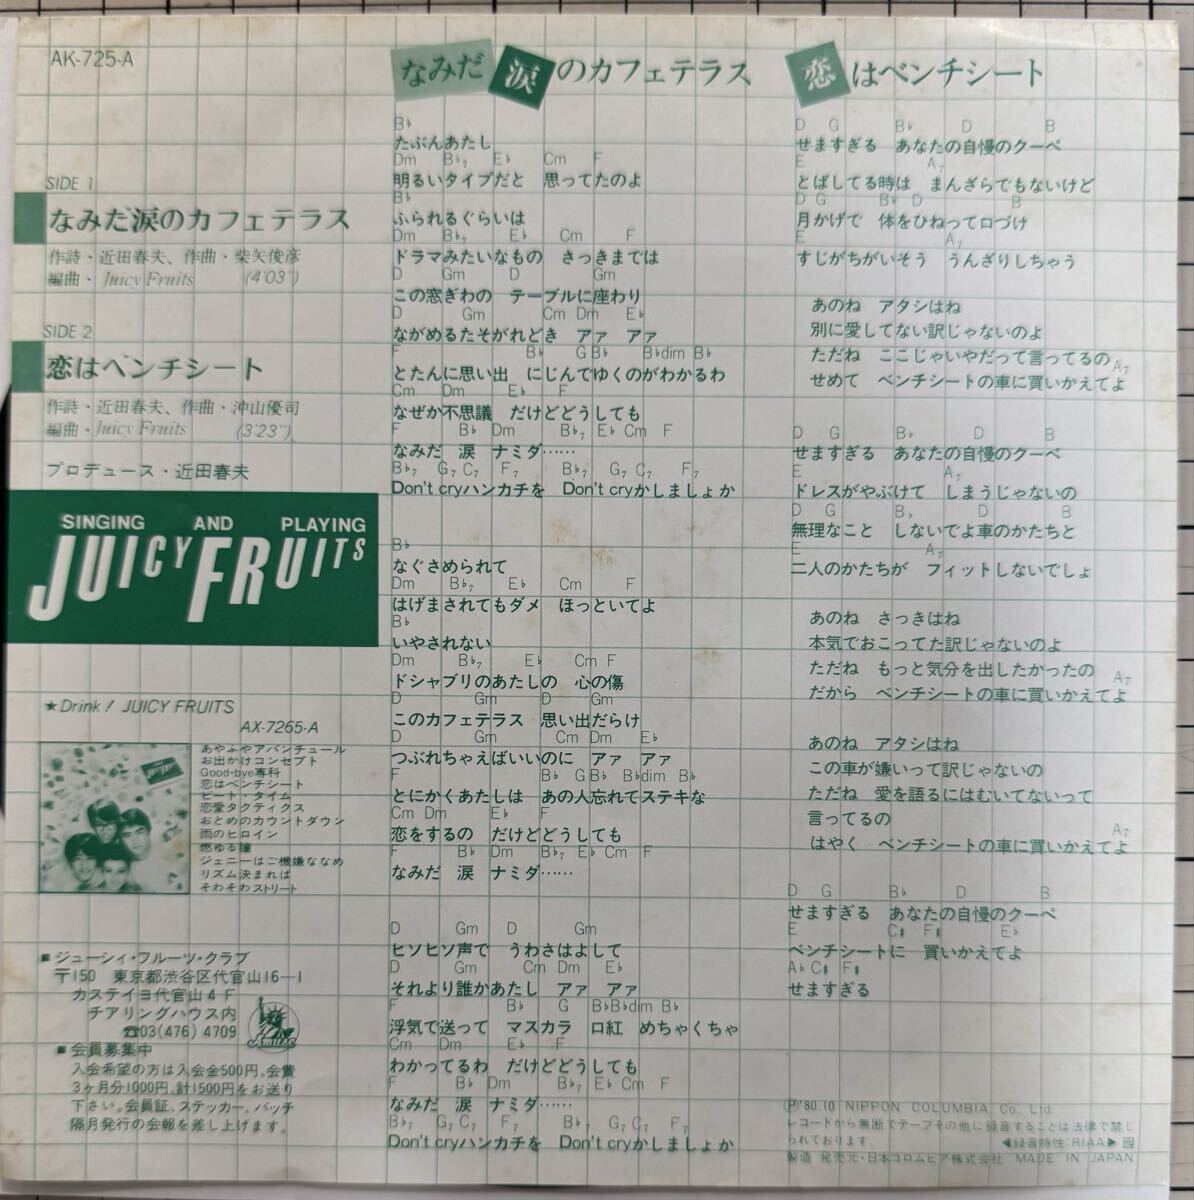 AK-725-A
SIDE 1
なみだ涙のカフェテラス
作詩・近田春夫、作曲・柴矢俊彦
編曲・Juicy Fruits (4'03")
SIDE 2
恋はベンチシート
作詩・近田春夫、作曲・沖山優司
編曲・Juicy Fruits (3'23")
プロデュース・近田春夫
SINGING AND PLAYING
JUICY FRUITS
★Drink! JUICY FRUITS
AX-7265-A
あやふやアバンチュール
お出かけコンセプト
Good-bye専科
恋はベンチシート
ビート・タイム
恋愛タクティクス
おとめのカウントダウン
雨のヒロイン
燃ゆる瞳
ジェニーはご機嫌ななめ
リズム決まれば
そわそわストリート
■ジューシィ・フルーツ・クラブ
〒150 東京都渋谷区代官山16−1
カステイヨ代官山4F
チアリングハウス内
☎03(476)4709
■会員募集中
入会希望の方は入会金500円、会費
3ヶ月分1000円、計1500円をお送り
下さい。会員証、ステッカー、バッチ
隔月発行の会報を差し上げます。
なみだ涙のカフェテラス
B♭
たぶんあたし
Dm B♭7 E♭ Cm F
明るいタイプだと 思ってたのよ
B♭
ふられるぐらいは
Dm B♭7 E♭ Cm F
ドラマみたいなもの さっきまでは
D Gm D Gm
この窓ぎわの テーブルに座わり
D Gm Cm Dm E♭
ながめるたそがれどき アァ アァ
F B♭ G B♭ B♭dim B♭
とたんに思い出 にじんでゆくのがわかるわ
Cm Dm E♭ F
なぜか不思議 だけどどうしても
F B♭ Dm B♭7 E♭ Cm F
なみだ 涙 ナミダ……
B♭7 G7 C7 F7 B♭7 G7 C7 F7
Don't cryハンカチを Don't cryかしましょか
B♭
なぐさめられて
Dm B♭7 E♭ Cm F
はげまされてもダメ ほっといてよ
B♭
いやされない
Dm B♭7 E♭ Cm F
ドシャブリのあたしの 心の傷
D Gm D Gm
このカフェテラス 思い出だらけ
D Gm Cm Dm E♭
つぶれちゃえばいいのに アァ アァ
F B♭ G B♭ B♭dim B♭
とにかくあたしは あの人忘れてステキな
Cm Dm E♭ F
恋をするの だけどどうしても
F B♭ Dm B♭7 E♭ Cm F
なみだ 涙 ナミダ……
D Gm D Gm
ヒソヒソ声で うわさはよして
D Gm Cm Dm E♭
それより誰かあたし アァ アァ
F B♭ G B♭B♭dim B♭
浮気で送って マスカラ 口紅 めちゃくちゃ
Cm Dm E♭ F
わかってるわ だけどどうしても
F B♭ Dm B♭7 E♭ Cm F
なみだ 涙 ナミダ……
B♭7 G7 C7 F7 B♭7 G7 C7 F7
Don't cryハンカチを Don't cryかしましょか
恋はベンチシート
D G B♭ D B
せますぎる あなたの自慢のクーペ
E A7
とばしてる時は まんざらでもないけど
D G B♭ D B
月かげで 体をひねって口づけ
E A7
すじがちがいそう うんざりしちゃう
あのね アタシはね
別に愛してない訳じゃないのよ
ただね ここじゃいやだって言ってるの
A7
せめて ベンチシートの車に買いかえてよ
D G B♭ D B
せますぎる あなたの自慢のクーペ
E A7
ドレスがやぶけて しまうじゃないの
D G B♭ D B
無理なこと しないでよ車のかたちと
E A7
二人のかたちが フィットしないでしょ
あのね さっきはね
本気でおこってた訳じゃないのよ
ただね もっと気分を出したかったの
A7
だから ベンチシートの車に買いかえてよ
あのね アタシはね
この車が嫌いって訳じゃないの
ただね 愛を語るにはむいてないって
言ってるの
A7
はやく ベンチシートの車に買いかえてよ
D G B♭ D B
せますぎる あなたの自慢のクーペ
E C♯ F♯ E♭
ベンチシートに 買いかえてよ
A♭ C♯ F♯
せますぎる
Ⓟ'80.10 NIPPON COLUMBIA Co., Ltd.
レコードから無断でテープその他に録音することは法律で禁じ
られております。 ◀録音特性：RIAA▶
製造 発売元・日本コロムビア株式会社 MADE IN JAPAN